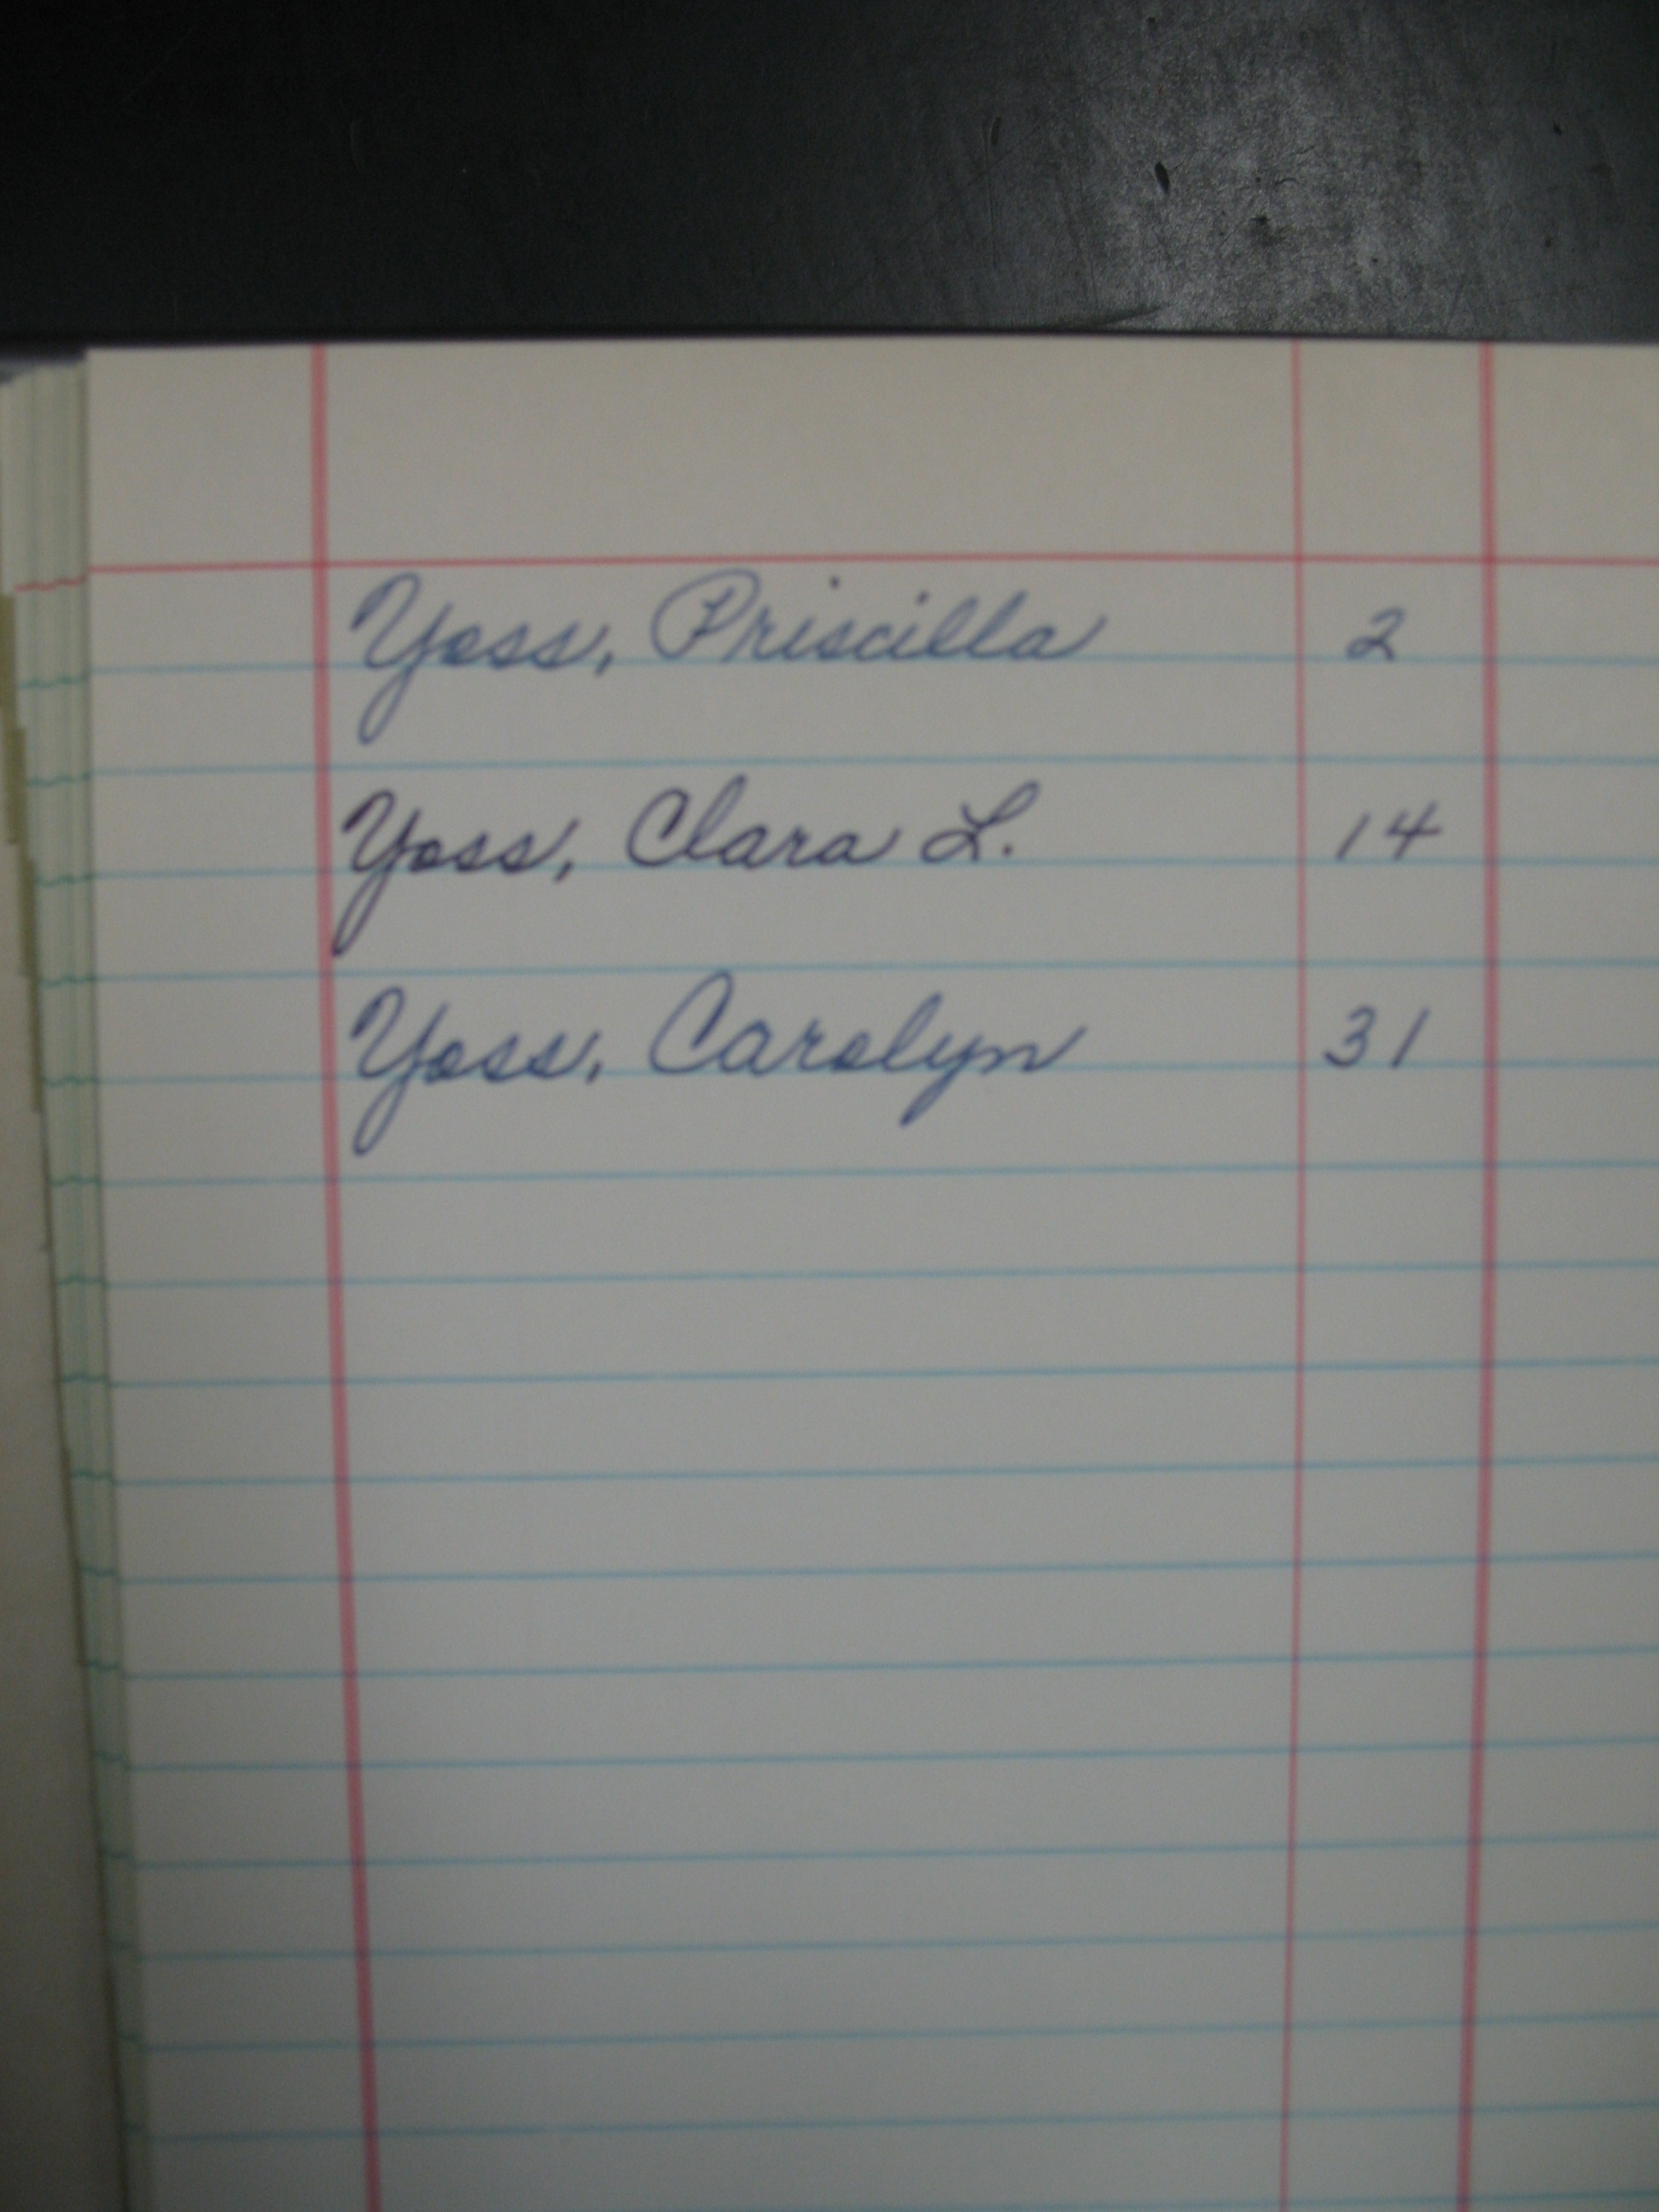 Yoss, Priscilla 2
Yoss, Clara L. 14
Yoss, Carolyn 31